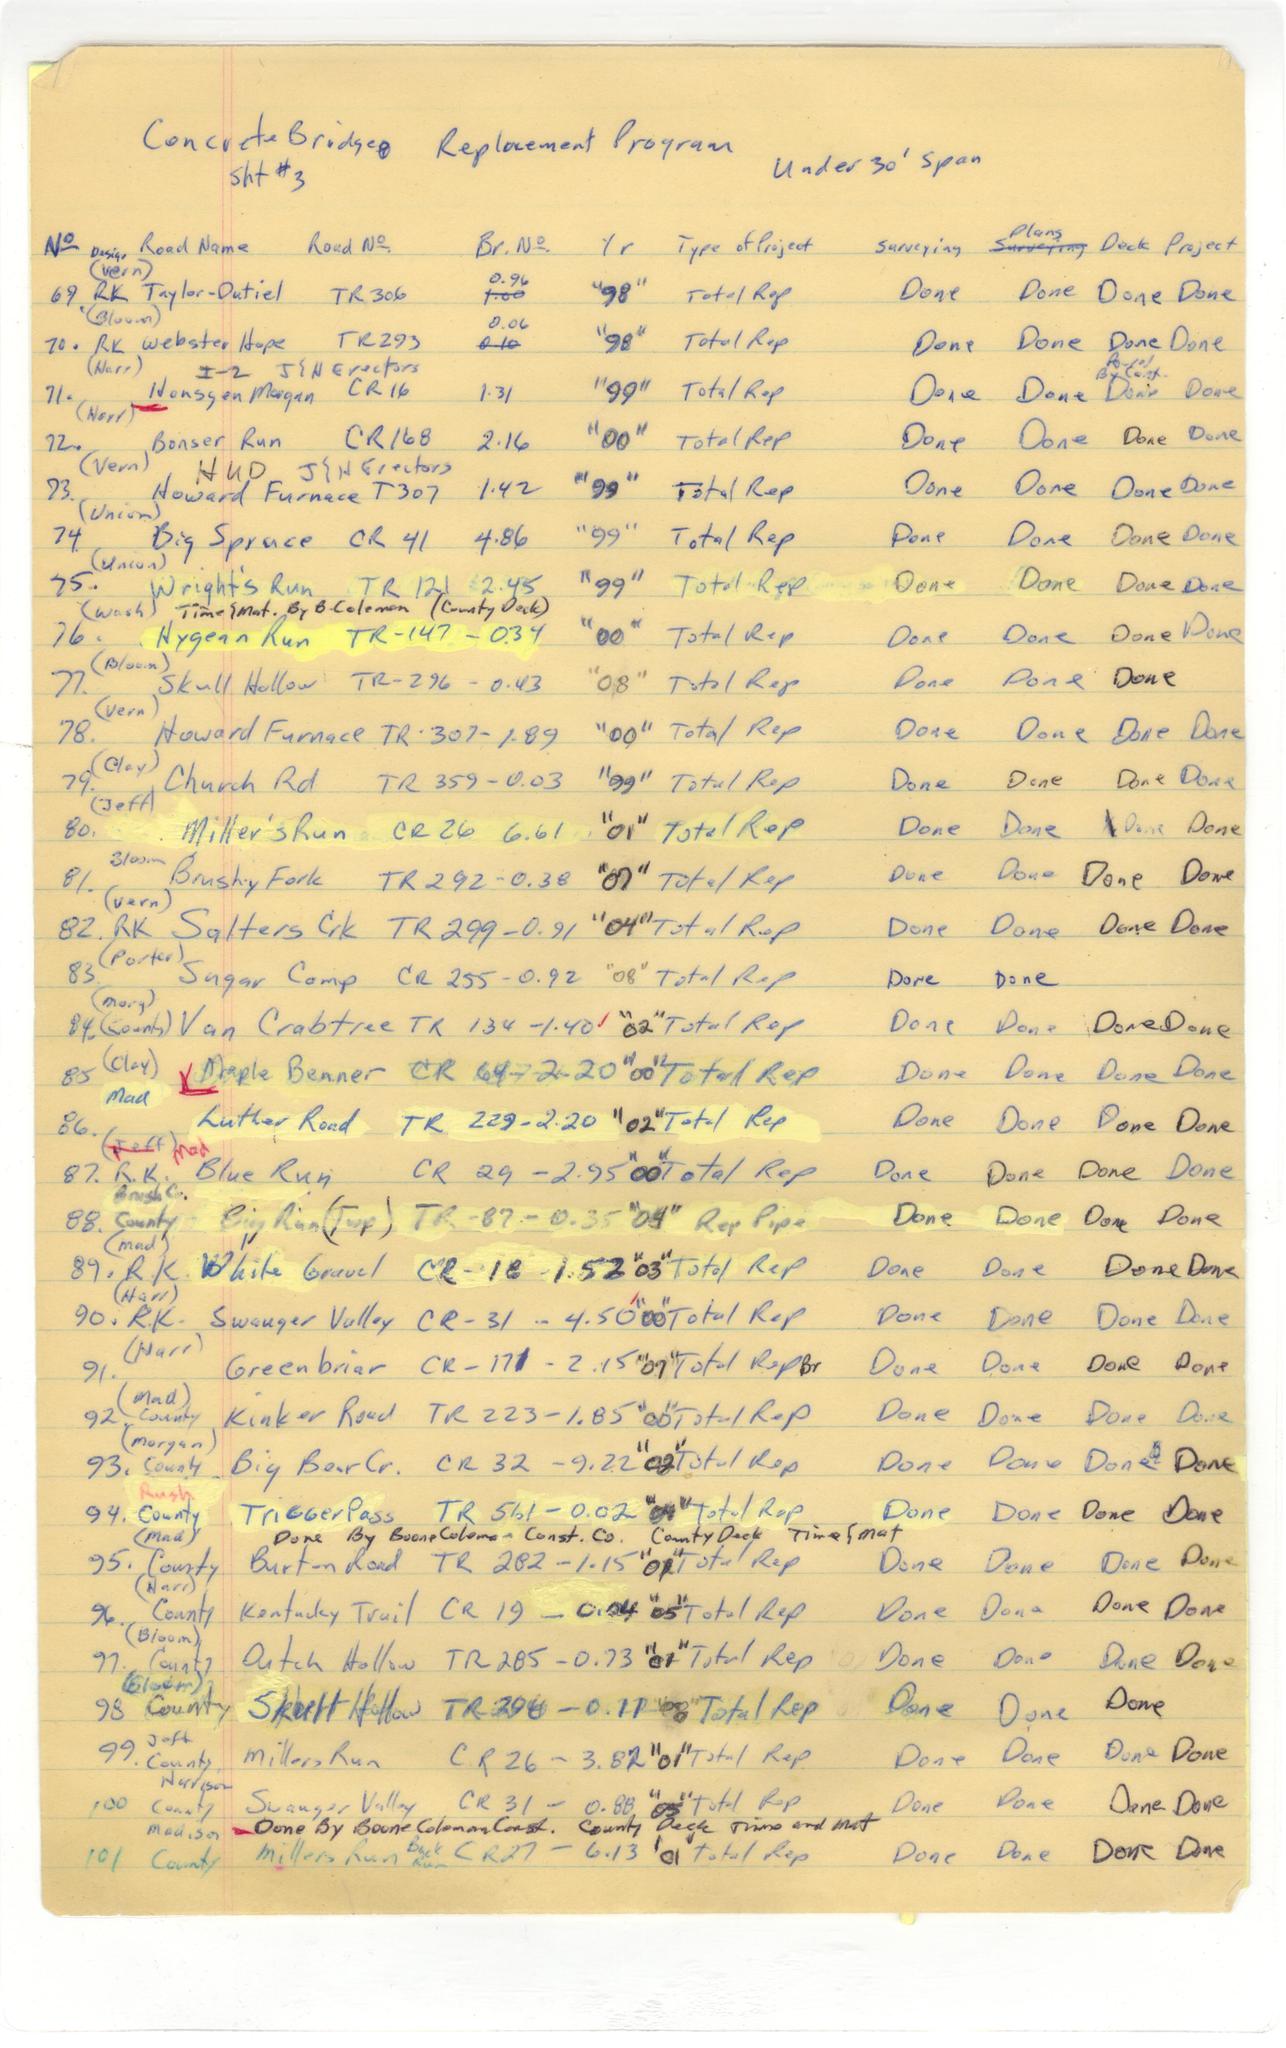 Concrete Bridge Replacement Program
Under 30' Span
Sht #3
No Design Road Name Road No. Br. No. Yr Type of Project Surveying Plans Deck Project
(Vern) 0.96
69. RK Taylor-Dutiel TR 306 1.00 "98" Total Rep Done Done Done Done
(Bloom) 0.06
70. RK Webster Hope TR 293 0.10 "98" Total Rep Done Done Done Done
(Harr) I-2 J&H Erectors
71. Hansgen Morgan CR 16 1.31 "99" Total Rep Done Done Done Done
(Harr)
72. Bonser Run CR 168 2.16 "00" Total Rep Done Done Done Done
(Vern) HUD J&H Erectors
73. Howard Furnace T307 1.42 "99" Total Rep Done Done Done Done
(Union)
74 Big Spruce CR 41 4.86 "99" Total Rep Done Done Done Done
(Union)
75. Wright's Run TR 121 2.45 "99" Total Rep Done Done Done Done
(Wash) Time & Mat. By B. Coleman (County Deck)
76. Hygean Run TR-147 - 0.34 "00" Total Rep Done Done Done Done
(Bloom)
77. Skull Hollow TR-296 - 0.43 "08" Total Rep Done Done Done
(Vern)
78. Howard Furnace TR-307 - 1.89 "00" Total Rep Done Done Done Done
(Clay)
79. Church Rd TR 359 - 0.03 "99" Total Rep Done Done Done Done
(Jeff)
80. Miller's Run CR 26 6.61 "01" Total Rep Done Done Done Done
Bloom
81. Brushy Fork TR 292 - 0.38 "07" Total Rep Done Done Done Done
(Vern)
82. RK Salters Crk TR 299 - 0.91 "04" Total Rep Done Done Done Done
(Porter)
83. Sugar Camp CR 255 - 0.92 "08" Total Rep Done Done
(Morg)
84. (County) Van Crabtree TR 134 - 1.40 "02" Total Rep Done Done Done Done
(Clay)
85 Maple Benner CR 64 - 2.20 "00" Total Rep Done Done Done Done
Mad
86. Luther Road TR 229 - 2.20 "02" Total Rep Done Done Done Done
(Jeff) Mad
87. R.K. Blue Run CR 29 - 2.95 "00" Total Rep Done Done Done Done
Brush Cr.
88. County Big Run (Twp) TR-87 - 0.35 "04" Rep Pipe Done Done Done Done
(Mad)
89. R.K. White Gravel CR-18 1.52 "03" Total Rep Done Done Done Done
(Harr)
90. R.K. Swauger Valley CR-31 - 4.50 "00" Total Rep Done Done Done Done
(Harr)
91. Greenbriar CR-171 - 2.15 "07" Total Rep Br Done Done Done Done
(Mad)
92. County Kinker Road TR 223 - 1.85 "00" Total Rep Done Done Done Done
(Morgan)
93. County Big Bear Cr. CR 32 - 9.22 "02" Total Rep Done Done Done Done
Rush
94. County Trigger Pass TR 561 - 0.02 "04" Total Rep Done Done Done Done
(Mad) Done By Boone Coleman Const. Co. County Deck Time & Mat
95. County Burton Road TR 282 - 1.15 "01" Total Rep Done Done Done Done
(Harr)
96. County Kentucky Trail CR 19 - 0.04 "05" Total Rep Done Done Done Done
(Bloom)
97. County Dutch Hollow TR 285 - 0.73 "01" Total Rep Done Done Done Done
(Bloom)
98 County Skull Hollow TR 296 - 0.11 Total Rep Done Done Done
Jeff
99. County Millers Run CR 26 - 3.82 "01" Total Rep Done Done Done Done
Harrison
100 County Swauger Valley CR 31 - 0.88 "05" Total Rep Done Done Done Done
Madison Done By Boone Coleman Const. County Deck Time and Mat
101 County Millers Run Back Run CR 27 - 6.13 '01 Total Rep Done Done Done Done